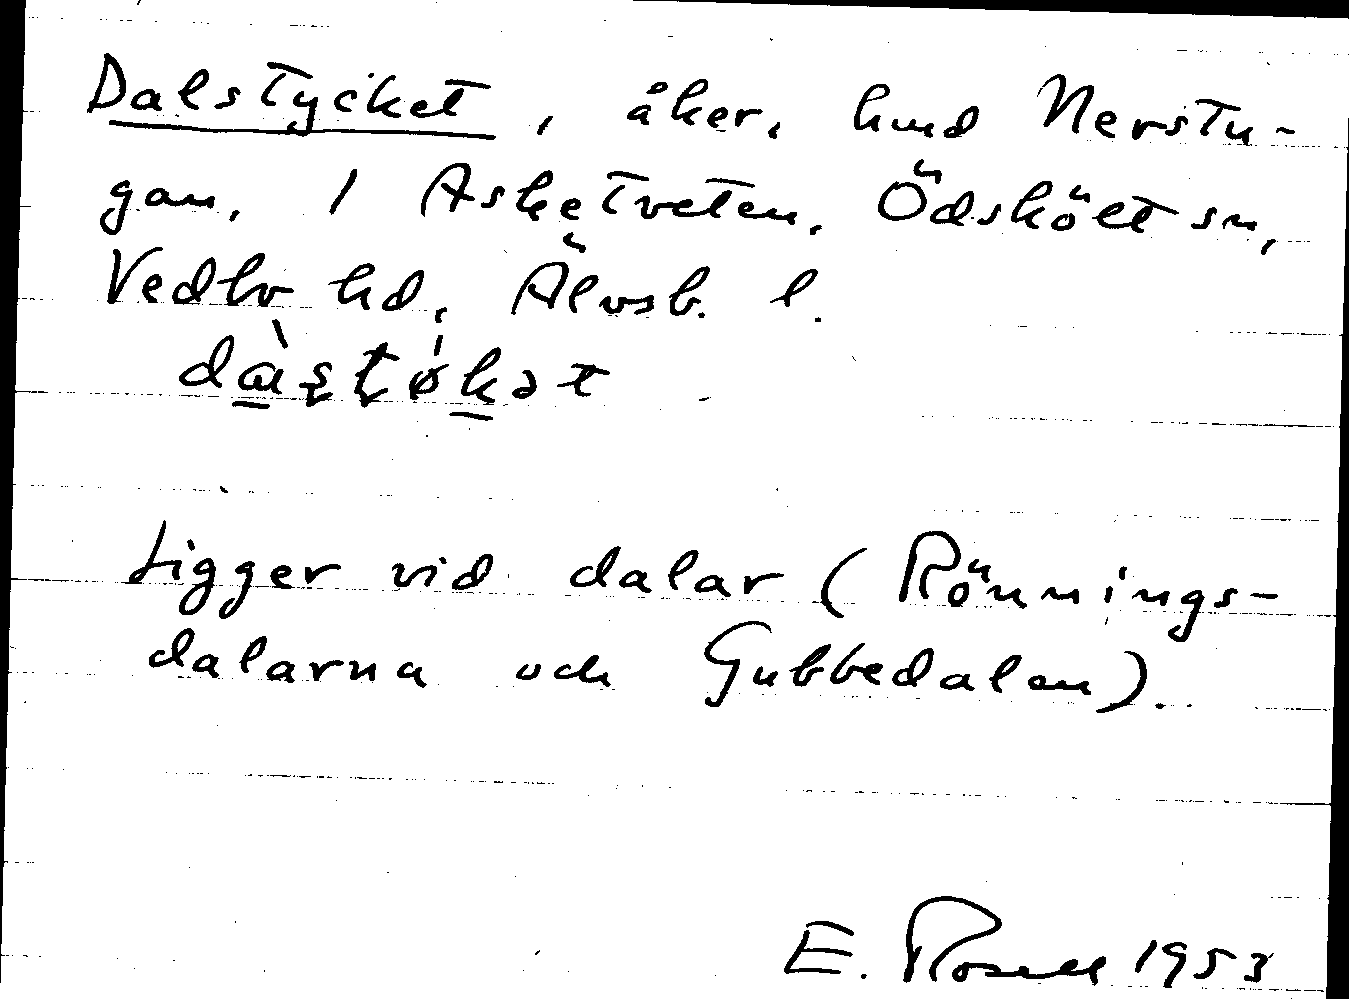 Dalstycket, åker, hmd Nerstu-
gan, 1 Asketveten, Ödskölt sn,
Vedbo hd, Älvsb. l.
Ligger vid dalar (Rönnings-
dalarna och Gubbedalen).
E. Rosell 1953